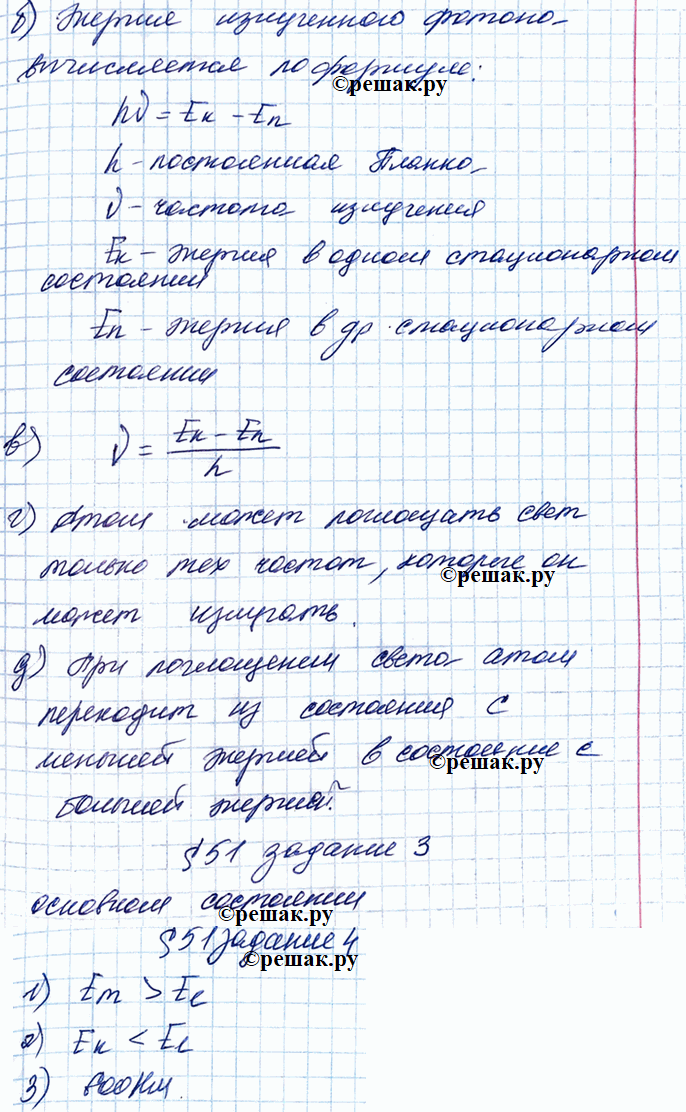 б) Энергия излученного фотона
вычисляется по формуле:
©решак.ру
hν = Eк − Eп
h - постоянная Планка
ν - частота излучения
Eк - энергия в одном стационарном
состоянии
Eп - энергия в др. стационарном
состоянии
в) ν = (Eк − Eп) / h
г) Атом может поглощать свет
только тех частот, которые он
©решак.ру
может излучать.
д) При поглощении света атом
переходит из состояния с
меньшей энергией в состояние с
©решак.ру
большей энергией.
§ 51 задание 3
основном состоянии
©решак.ру
§ 51 задание 4
©решак.ру
1) Em > Eе
2) Eк <
3)